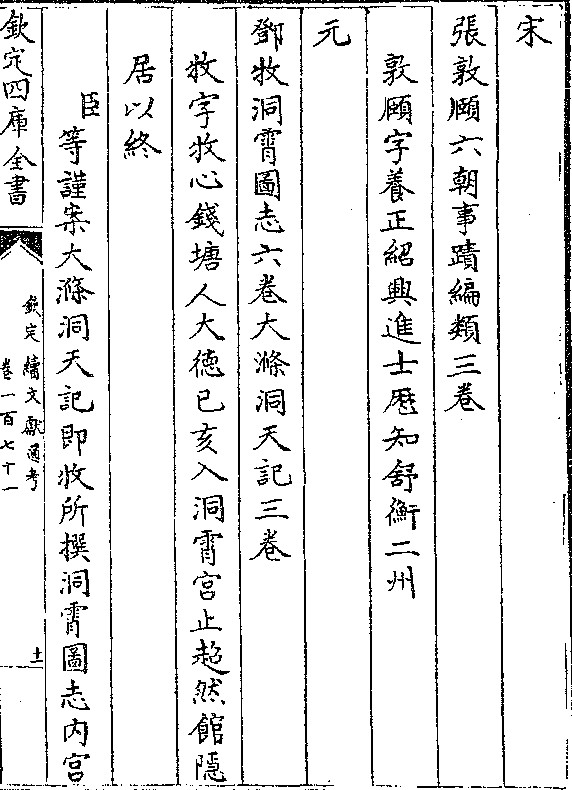 宋
張敦頤六朝事蹟編類三卷
敦頤字養正紹興進士歷知舒衡二州
元
鄧牧洞霄圖志六卷大滌洞天記三卷
牧字牧心錢塘人大德已亥入洞霄宮止超然館隱
居以終
臣等謹案大滌洞天記即牧所撰洞霄圖志内宮
欽定四庫全書
欽定續文獻通考
卷一百七十一
十一